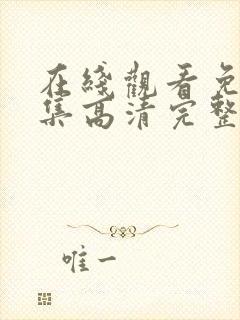 在綫觀看免
集高清完整
唯一